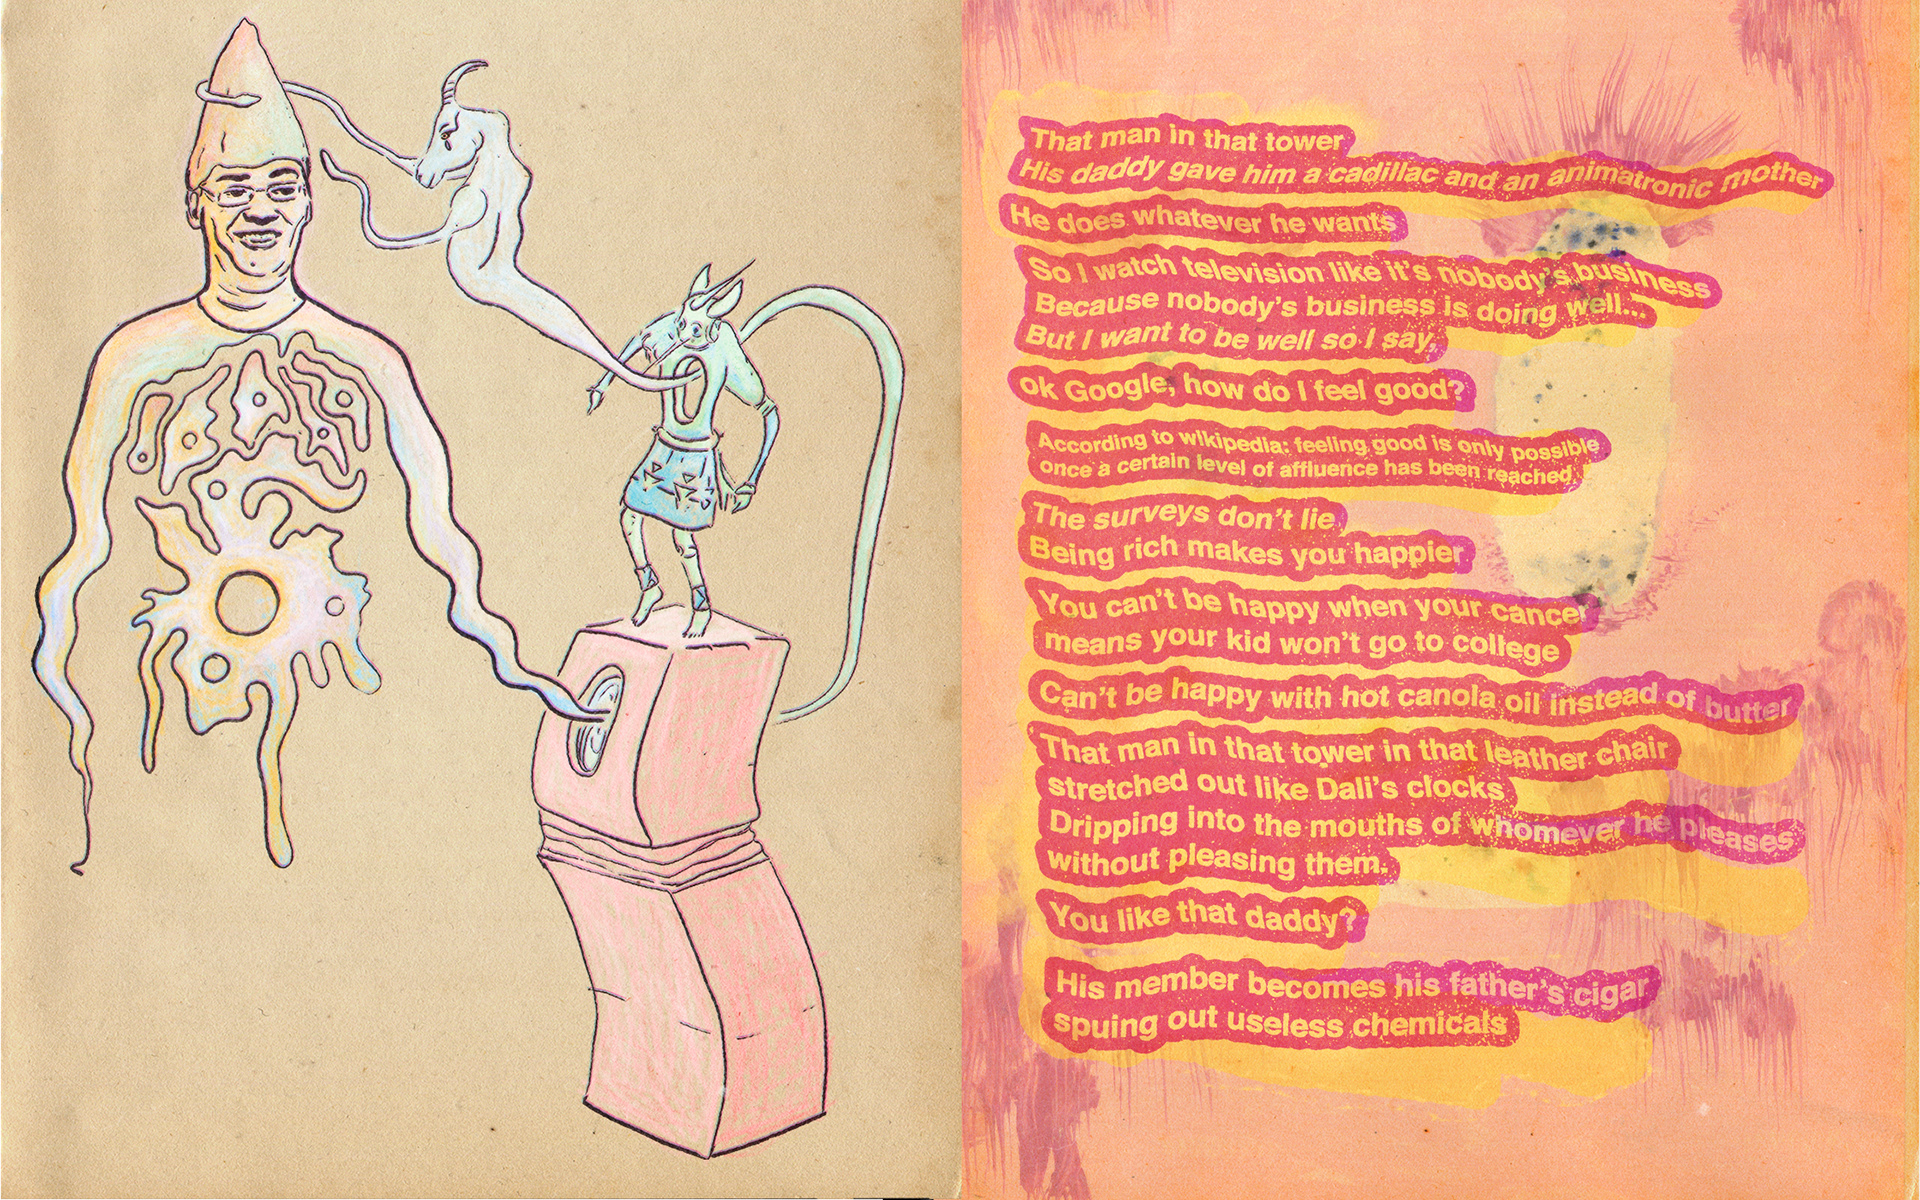 That man in that tower
His daddy gave him a cadillac and an animatronic mother
He does whatever he wants
So I watch television like it's nobody's business
Because nobody's business is doing well...
But I want to be well so I say,
ok Google, how do I feel good?
According to wikipedia; feeling good is only possible
once a certain level of affluence has been reached.
The surveys don't lie
Being rich makes you happier
You can't be happy when your cancer
means your kid won't go to college
Can't be happy with hot canola oil instead of butter
That man in that tower in that leather chair
stretched out like Dali's clocks
Dripping into the mouths of whomever he pleases
without pleasing them.
You like that daddy?
His member becomes his father's cigar
spuing out useless chemicals